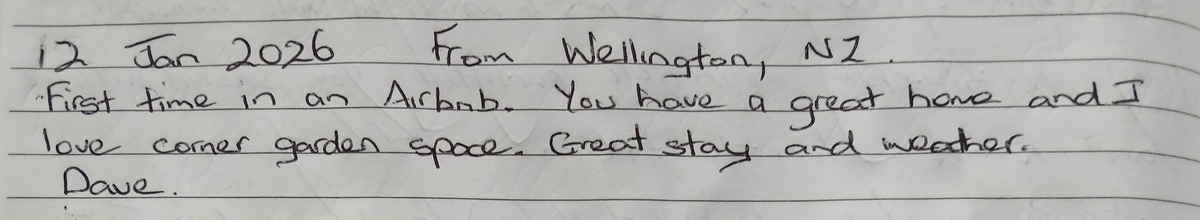 12 Jan 2026 From Wellington, NZ.
First time in an Airbnb. You have a great home and I
love corner garden space. Great stay and weather.
Dave.